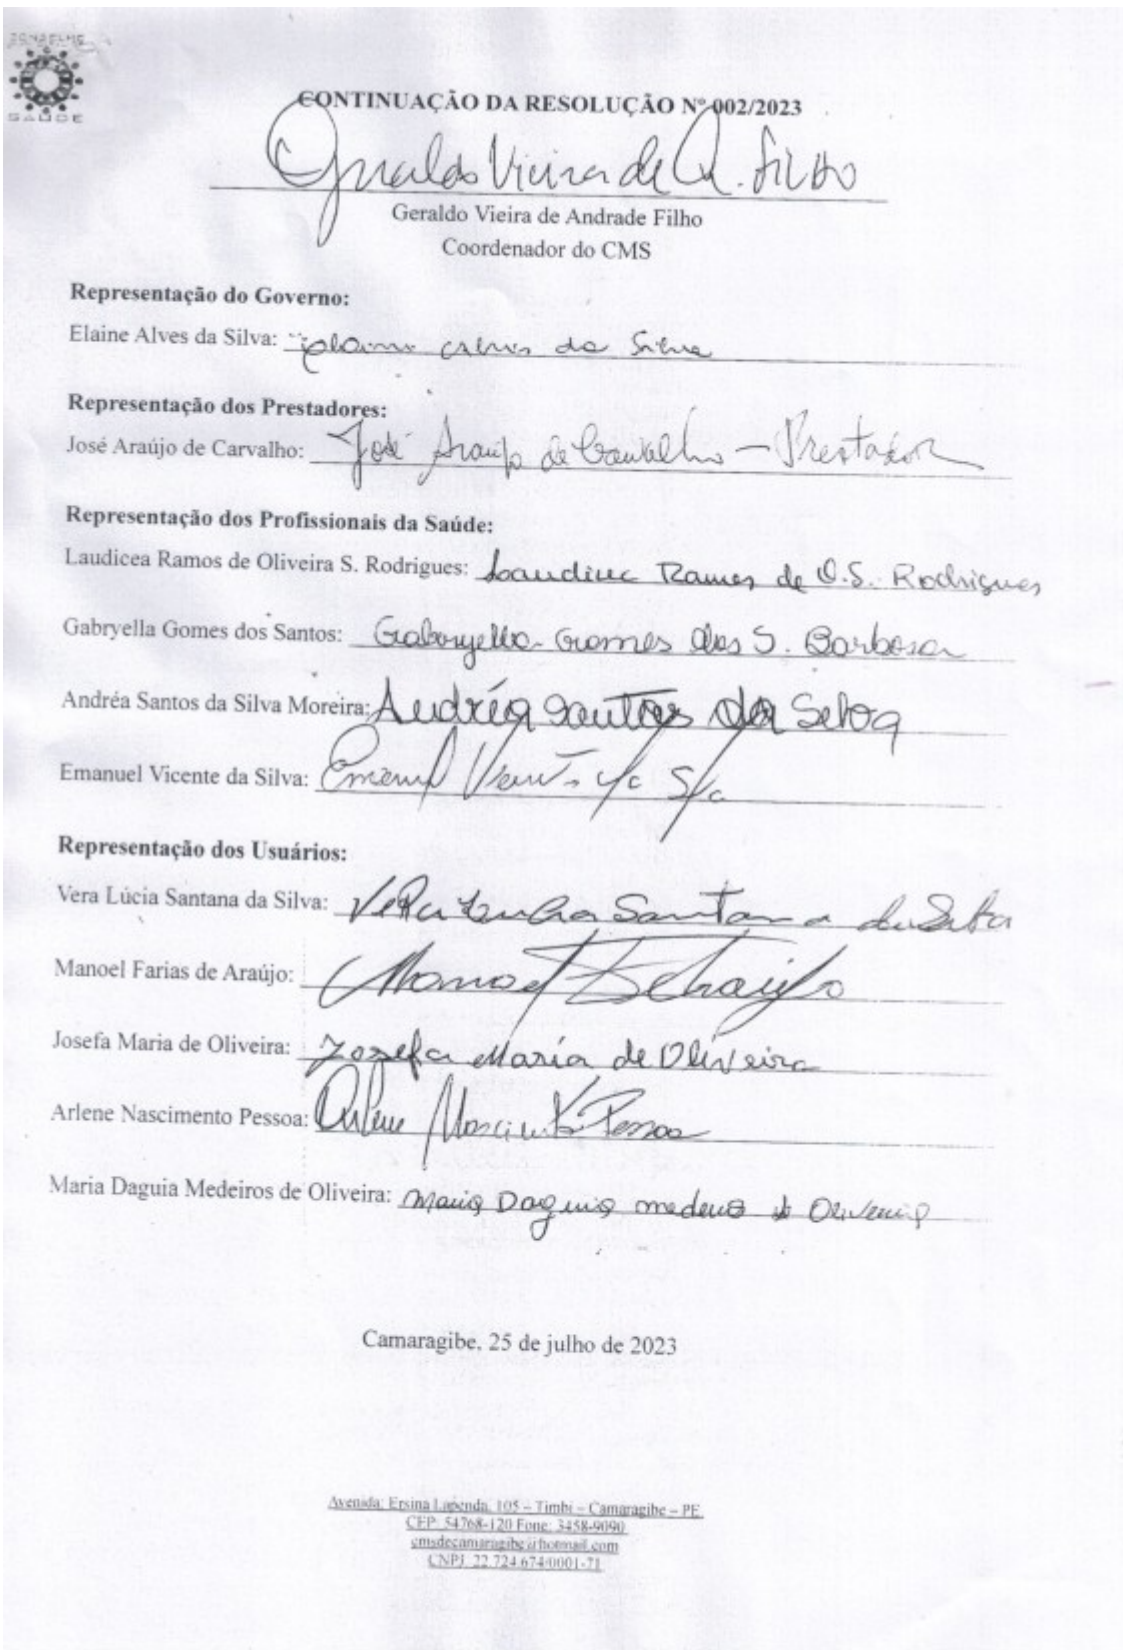 SAÚDE
CONTINUAÇÃO DA RESOLUÇÃO Nº 002/2023
Geraldo Vieira de A. Filho
Geraldo Vieira de Andrade Filho
Coordenador do CMS
Representação do Governo:
Elaine Alves da Silva: Elaine Alves da Silva
Representação dos Prestadores:
José Araújo de Carvalho: José Araújo de Carvalho – Prestador
Representação dos Profissionais da Saúde:
Laudicea Ramos de Oliveira S. Rodrigues: Ramos de O.S. Rodrigues
Gabryella Gomes dos Santos: Gabryella Gomes dos S. Barbosa
Andréa Santos da Silva Moreira: Andréa Santos da Silva
Emanuel Vicente da Silva:
Representação dos Usuários:
Vera Lúcia Santana da Silva: Vera Lucia Santana da Silva
Manoel Farias de Araújo: Manoel
Josefa Maria de Oliveira: Josefa Maria de Oliveira
Arlene Nascimento Pessoa: Arlene Nascimento Pessoa
Maria Daguia Medeiros de Oliveira: Maria Daguia medeiros de Oliveira
Camaragibe, 25 de julho de 2023
Avenida: Ersina Lapenda, 105 – Timbi – Camaragibe – PE.
CEP: 54768-120 Fone: 3458-9090
cmsdecamaragibe@hotmail.com
CNPJ. 22.724.674/0001-71